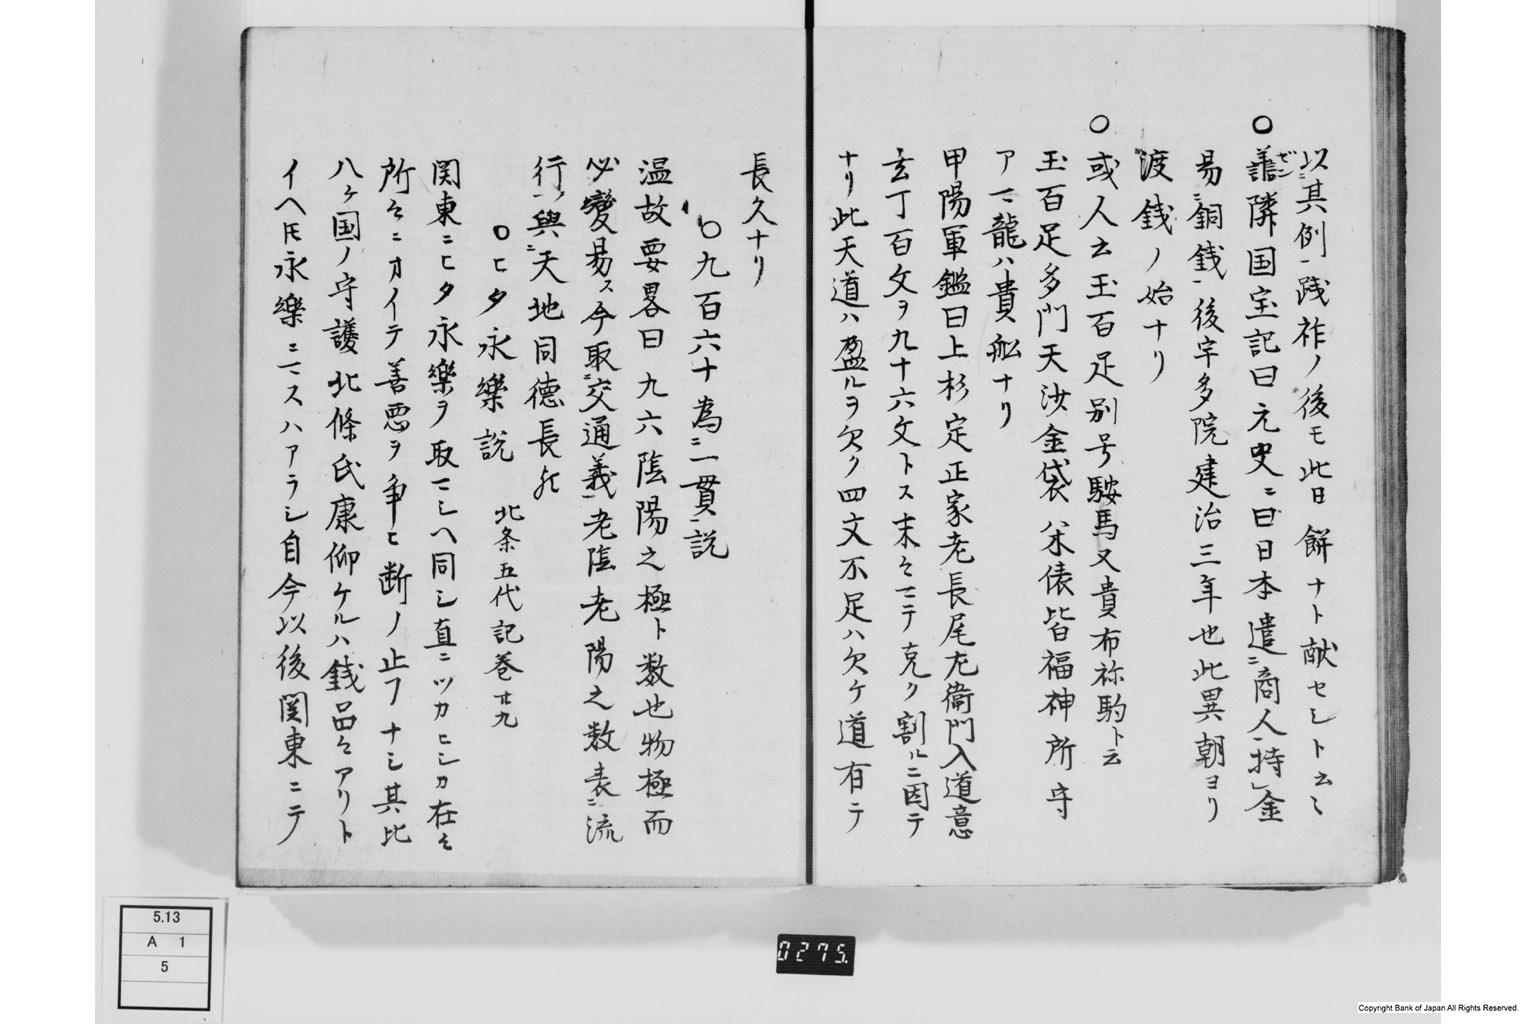 以其例践祚ノ後モ此日餅ナト献セシト云々
○善隣国宝記曰元史ニ曰日本遣商人持金
易銅銭後宇多院建治三年也此異朝ヨリ
渡銭ノ始ナリ
○或人云玉百足別号鞍馬又貴布祢駒ト云
玉百足多門天沙金袋米俵皆福神所守
ナリ龍ハ貴舩ナリ
甲陽軍鑑曰上杉定正家老長尾左衛門入道意
玄丁百文ヲ九十六文トス末々マテ克ク割ルニ因テ
ナリ此天道ハ盈ルヲ欠ク四文不足ハ欠ケ道有テ
長久ナリ
○九百六十為一貫説
温故要畧曰九六陰陽之極ト数也物極而
必變易ス今取交通義老陰老陽之数表流
行與天地同徳長化
○ヒタ永樂説 北条五代記巻廿九
関東ニヒタ永樂ヲ取マシヘ同シ直ニツカヒシカ在々
所々ニオイテ善悪ヲ争ヒ断ノ止フナシ其比
八ケ国ノ守護北條氏康仰ケルハ銭品々アリト
イヘ𪜈永樂ニマスハアラシ自今以後関東ニテ
5.13
A 1
5
0275.
Copyright Bank of Japan All Rights Reserved.